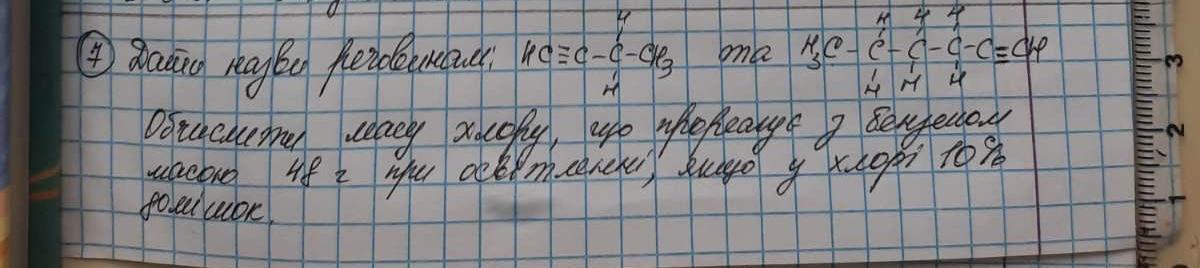 7 Дати назви речовинам: HC≡C-C-CH3 та H3C-C-C-C-C≡CH
Обчислити масу хлору, що прореагує з бензеном
масою 48 г при освітленні, якщо у хлорі 10%
домішок.